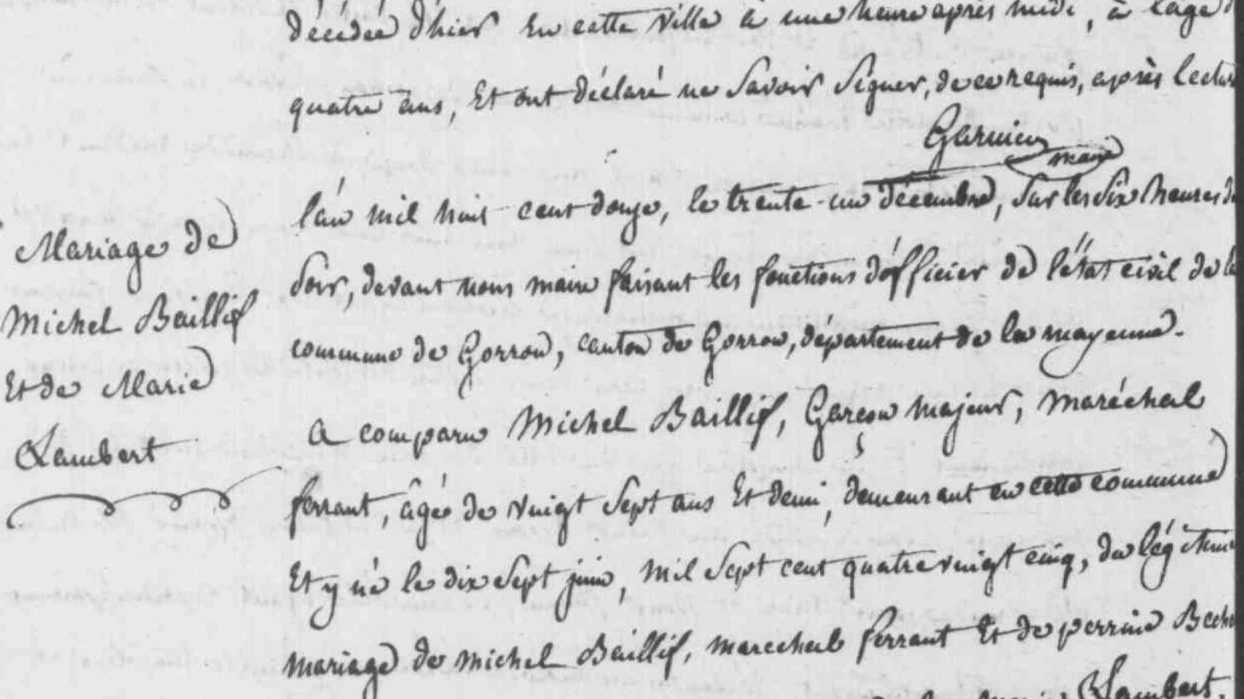 décédée d'hier en cette ville à une heure après midi, à l'age
quatre ans, Et ont déclaré ne Savoir Signer, de ce requis, après lecture
Garnier
maire
l'an mil huit cent douze, le trente-un décembre, Sur les Six heures du
Soir, devant nous maire faisant les fonctions d'officier de l'état civil de la
commune de Gorron, canton de Gorron, département de la mayenne.
Mariage de
Michel Baillif
Et de Marie
Lambert
a comparu Michel Baillif, Garçon majeur, maréchal
ferrant, âgé de vingt Sept ans Et demi, demeurant en cette commune
Et y né le dix Sept juin, mil Sept cent quatre vingt cinq, du légitime
mariage de michel Baillif, marechal ferrant Et de perrine
Lambert,